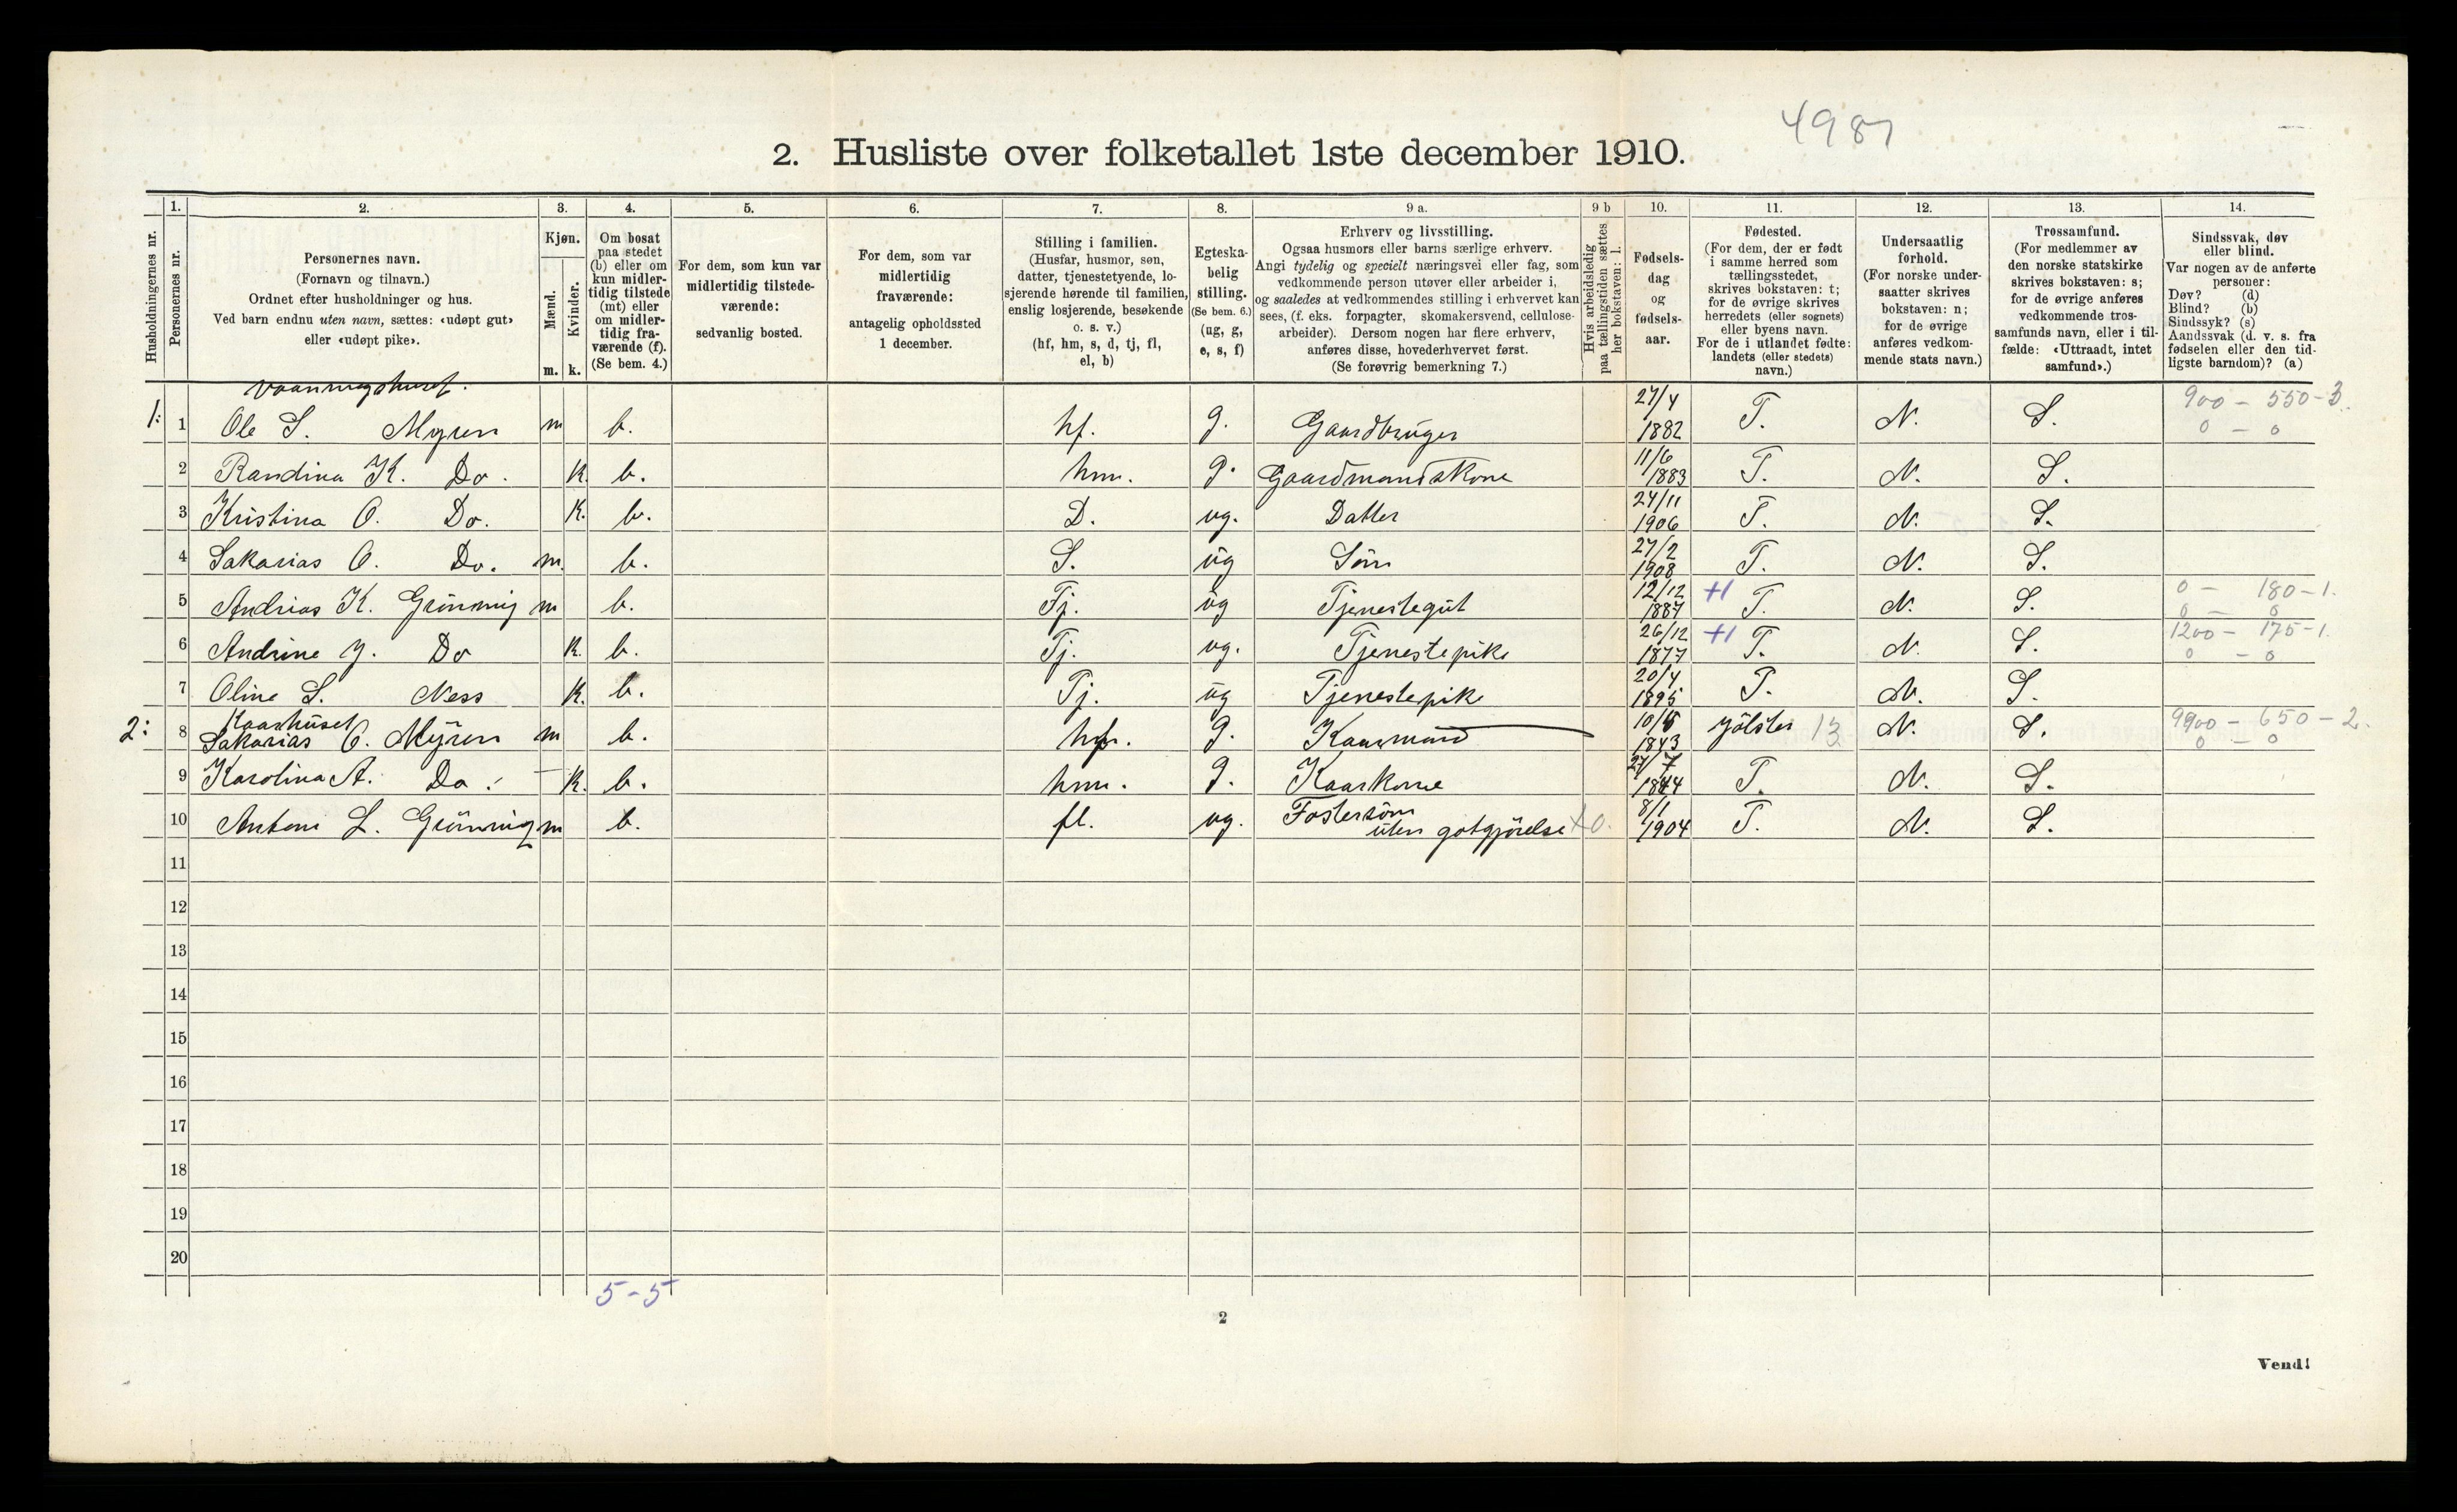 4987
2. Husliste over folketallet 1ste december 1910.
Husholdningernes nr.
1. Personernes nr.
2. Personernes navn.
(Fornavn og tilnavn.)
Ordnet efter husholdninger og hus.
Ved barn endnu uten navn, sættes: «udøpt gut»
eller «udøpt pike».
3. Kjøn.
Mænd. m.
Kvinder. k.
4. Om bosat
paa stedet
(b) eller om
kun midler-
tidig tilstede
(mt) eller
om midler-
tidig fra-
værende (f).
(Se bem. 4.)
5. For dem, som kun var
midlertidig tilstede-
værende:
sedvanlig bosted.
6. For dem, som var
midlertidig
fraværende:
antagelig opholdssted
1 december.
7. Stilling i familien.
(Husfar, husmor, søn,
datter, tjenestetyende, lo-
sjerende hørende til familien,
enslig losjerende, besøkende
o. s. v.)
(hf, hm, s, d, tj, fl,
el, b)
8. Egteska-
belig
stilling.
(Se bem. 6.)
(ug, g,
e, s, f)
9 a. Erhverv og livsstilling.
Ogsaa husmors eller barns særlige erhverv.
Angi tydelig og specielt næringsvei eller fag, som
vedkommende person utøver eller arbeider i,
og saaledes at vedkommendes stilling i erhvervet kan
sees, (f. eks. forpagter, skomakersvend, cellulose-
arbeider). Dersom nogen har flere erhverv,
anføres disse, hovederhvervet først.
(Se forøvrig bemerkning 7.)
9 b Hvis arbeidsledig
paa tællingstiden sættes
her bokstaven: l.
10. Fødsels-
dag
og
fødsels-
aar.
11. Fødested.
(For dem, der er født
i samme herred som
tællingsstedet,
skrives bokstaven: t;
for de øvrige skrives
herredets (eller sognets)
eller byens navn.
For de i utlandet fødte:
landets (eller stedets)
navn.)
12. Undersaatlig
forhold.
(For norske under-
saatter skrives
bokstaven: n;
for de øvrige
anføres vedkom-
mende stats navn.)
13. Trossamfund.
(For medlemmer av
den norske statskirke
skrives bokstaven: s;
for de øvrige anføres
vedkommende tros-
samfunds navn, eller i til-
fælde: «Uttraadt, intet
samfund».)
14. Sindssvak, døv
eller blind.
Var nogen av de anførte
personer:
Døv? (d)
Blind? (b)
Sindssyk? (s)
Aandssvak (d. v. s. fra
fødselen eller den tid-
ligste barndom)? (a)
Vaaningshuset.
1: 1 Ole S. Myren m b. hf. g. Gaardbruger 27/4 1882 T. N. S. 900 - 550-3.
0 - 0
2 Randina K. Do. K. b. hm. g. Gaardmandskone 11/6 1883 T. N. S.
3 Kristina O. Do. K. b. D. ug. Datter 24/11 1906 T. N. S.
4 Sakarias O. Do. m. b. S. ug Sön 27/2 1908 T. N. S.
5 Andrias K. Grönning m b. Tj. ug Tjenestegut 12/12 1887 +1 T. N. S. 0 - 180-1.
0 - 0
6 Andrine J. Do K. b. Tj. ug. Tjenestepike 26/12 1877 +1 T. N. S. 1200 - 175-1.
0 - 0
7 Oline S. Ness K. b. Tj. ug Tjenestepike 20/4 1895 T. N. S.
Kaarhuset
2: 8 Sakarias O. Myren m b. hf. g. Kaarmand 10/5 1843 Jölster 13 N. S. 9900 - 650 - 2.
0 - 0
9 Karolina A. Do. K. b. hm. g. Kaarkone 27/7 1844 T. N. S.
10 Anton L. Grönning m b. fl. ug. Fostersön
uten gotgjörelse +0. 8/1 1904 T. N. S.
11
12
13
14
15
16
17
18
19
20
5-5
2
Vend!